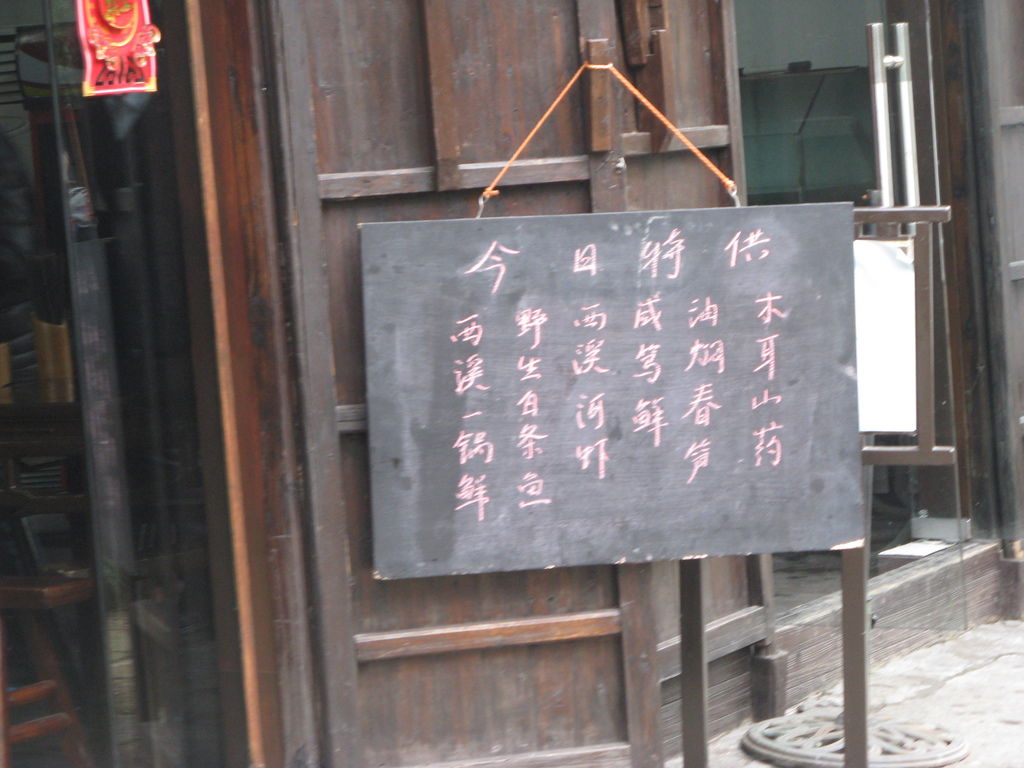 今日特供
西溪一锅鲜
野生白条鱼
西溪河虾
咸笃鲜
油焖春笋
木耳山药